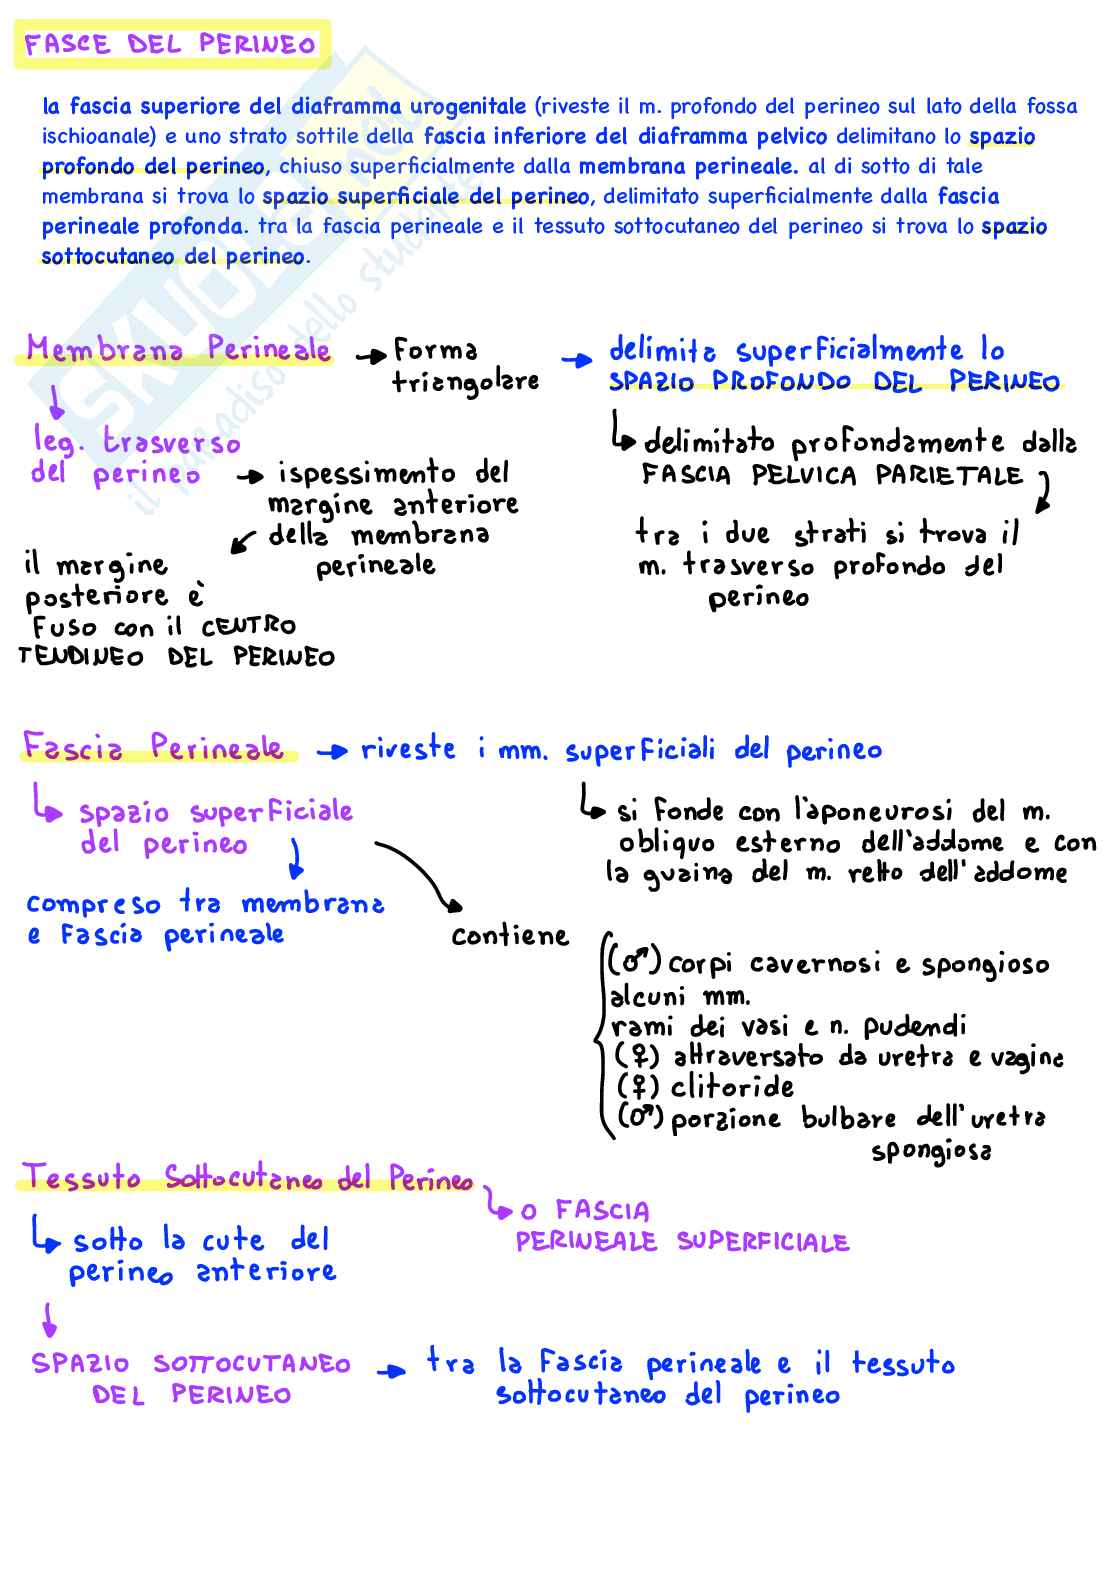 FASCE DEL PERINEO
la fascia superiore del diaframma urogenitale (riveste il m. profondo del perineo sul lato della fossa
ischioanale) e uno strato sottile della fascia inferiore del diaframma pelvico delimitano lo spazio
profondo del perineo, chiuso superficialmente dalla membrana perineale. al di sotto di tale
membrana si trova lo spazio superficiale del perineo, delimitato superficialmente dalla fascia
perineale profonda. tra la fascia perineale e il tessuto sottocutaneo del perineo si trova lo spazio
sottocutaneo del perineo.
Membrana Perineale → Forma
triangolare
→ delimita superficialmente lo
SPAZIO PROFONDO DEL PERINEO
leg. trasverso
del perineo
→ ispessimento del
margine anteriore
della membrana
perineale
il margine
posteriore è
Fuso con il CENTRO
TENDINEO DEL PERINEO
delimitato profondamente dalla
FASCIA PELVICA PARIETALE
tra i due strati si trova il
m. trasverso profondo del
perineo
Fascia Perineale → riveste i mm. superficiali del perineo
spazio superficiale
del perineo
si fonde con l'aponeurosi del m.
obliquo esterno dell'addome e con
la guaina del m. retto dell'addome
compreso tra membrana
e Fascia perineale
contiene
(♂) corpi cavernosi e spongioso
alcuni mm.
rami dei vasi e n. pudendi
(♀) attraversato da uretra e vagina
(♀) clitoride
(♂) porzione bulbare dell'uretra
spongiosa
Tessuto Sottocutaneo del Perineo
o FASCIA
PERINEALE SUPERFICIALE
sotto la cute del
perineo anteriore
SPAZIO SOTTOCUTANEO
DEL PERINEO
→ tra la Fascia perineale e il tessuto
sottocutaneo del perineo
SKUOLA.net
il paradiso dello studente